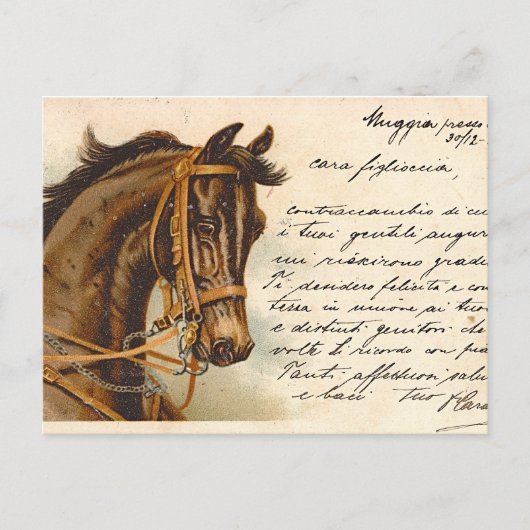 Muggia presso
30/12-
cara figlioccia,
contraccambio di cu
i tuoi gentili augur
mi riescirono gradi
Ti desidero felicità e con
tezza in unione ai tuo
e distinti genitori che
volte li ricordo con pia
Tanti affettuosi salu
e baci tuo